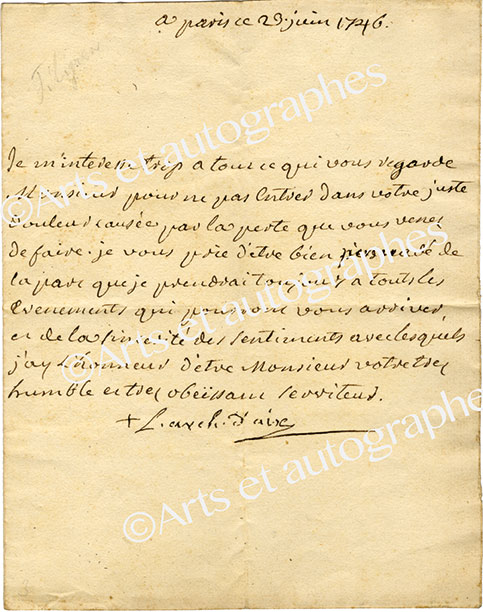 a paris ce 23 juin 1746.
Je m'interesse trop a tout ce qui vous regarde
Monsieur pour ne pas entrer dans votre juste
douleur causée par la perte que vous venes
de faire. je vous prie d'être bien persuadé de
la part que je prendrai toujours a touts les
Evenements qui pourront vous arriver,
et de la sincerité des sentiments avec lesquels
j'ay L'honneur d'être Monsieur votre tres
humble et tres obëissant serviteur.
+ L. arch. d'aix
©Arts et autographes
©Arts et autographes
©Arts et autographes
©Arts et autographes